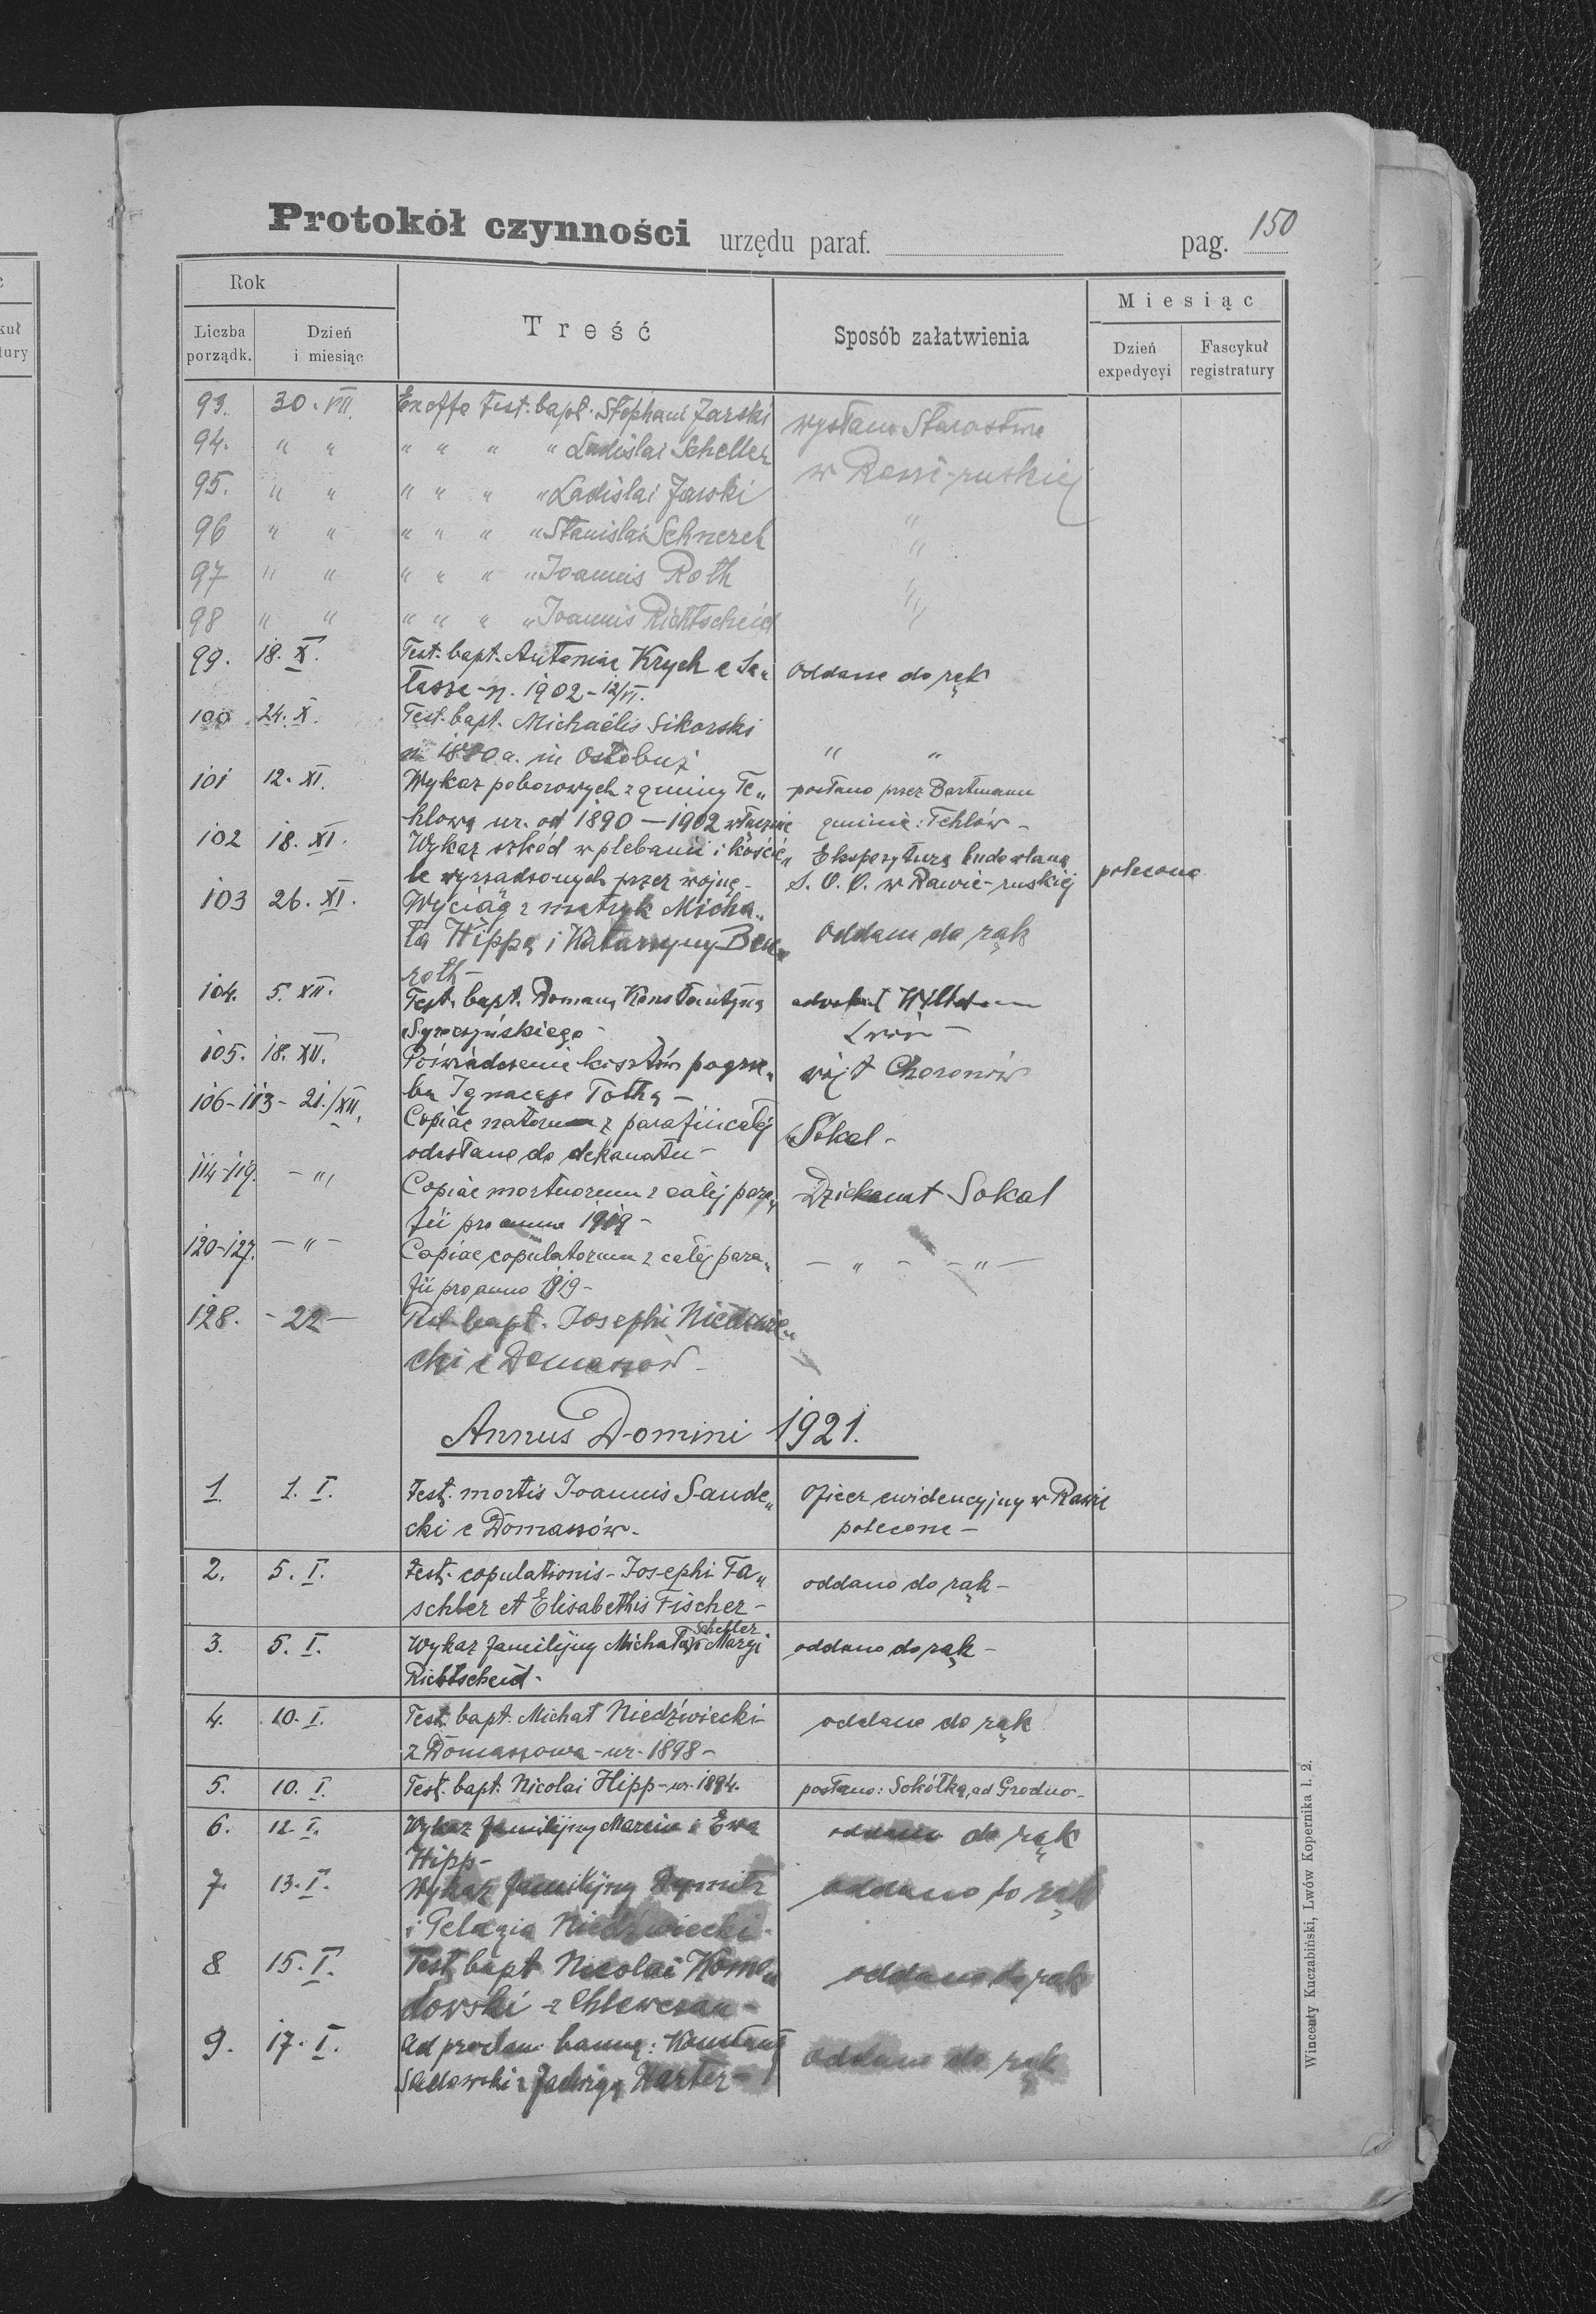 Protokół czynności urzędu paraf. pag. 150
Rok
Treść
Sposób załatwienia
Miesiąc
Liczba porządk.
Dzień i miesiąc
Dzień expedycyi
Fascykuł registratury
93. 30. VII. Ex offo test. bapt. Stephani Jarski wysłano Starostwo
94. " " " " " " Ladislai Scheller w Rawi-ruskiej
95. " " " " " " Ladislai Jarski
96 " " " " " " Stanislai Schnerch "
97 " " " " " " Joannis Roth "
98 " " " " " " Joannis Richtscheid "
99. 18. X. Test. bapt. Antoniae Krych e Sa„ oddano do rąk
lasze - n. 1902 - 12/VI.
100 24. X. Test. bapt. Michaëlis Sikorski
a. in Ostobuż " "
101 12. XI. Wykaz poborowych z gminy Te„ posłano przez Bartmann
hlową ur. od 1890 — 1902 włącznie gminie: Tehlów -
102 18. XI. Wykaz szkód w plebanii i kościé„ Ekspozyturą budowlaną polecono
le wyrządzonych przez wojnę - S. O. O. w Rawie-ruskiej
103 26. XI. Wyciąg z metryk Micha„
ła Hippą i Katarzyny Ben„ Oddano do rąk
roth -
104. 5. XII. Test. bapt. Romana Konstantyna adwokat
Syroczyńskiego - Lwów -
105. 18. XII. Poświadczenie kosztów pogrze„ wójt Choronów
bu Ignacego Totha -
106-113 - 21./XII. Copiae natorum z parafii całej Sokal -
odesłano do dekanatu -
114-119. - " , Copiae mortuorum z całej para„ Dziekanat Sokal
fii pro anno 1919 -
120-127. - " - Copiae copulatorum z całej para„ - " - - " -
fii pro anno 1919 -
128. - 22 - Test. bapt. Josephi Niedźwie„
cki e Domaszów -
Annus Domini 1921.
1. 1. I. Test. mortis Joannis Sande„ Oficer ewidencyjny w Rawie
cki e Domaszów. polecone -
2. 5. I. Test. copulationis - Josephi Ta„ oddano do rąk -
schler et Elisabethis Fischer -
Scheller
3. 5. I. Wykaz familijny Michała i Maryi oddano do rąk -
Richtscheid -
4. 10. I. Test. bapt. Michał Niedźwiecki oddano do rąk
z Domaszowa - ur. 1898 -
5. 10. I. Test. bapt. Nicolai Hipp - ur. 1894. posłano: Sokółka, ad Grodno -
6. 12. I. Wykaz familijny Marcin i Ewa oddano do rąk
Hipp -
7. 13. I. Wykaz familijny Dymitr oddano do rąk
i Pelagia Niedźwiecki -
8. 15. I. Test. bapt. Nicolai Komo„ oddano do rąk
dowski z Chlewczan -
9. 17. I. Ad proclam. banną: Konstanty Oddano do rąk
Sadowski i Jadwiga Harter -
Wincenty Kuczabiński, Lwów Kopernika l. 2.